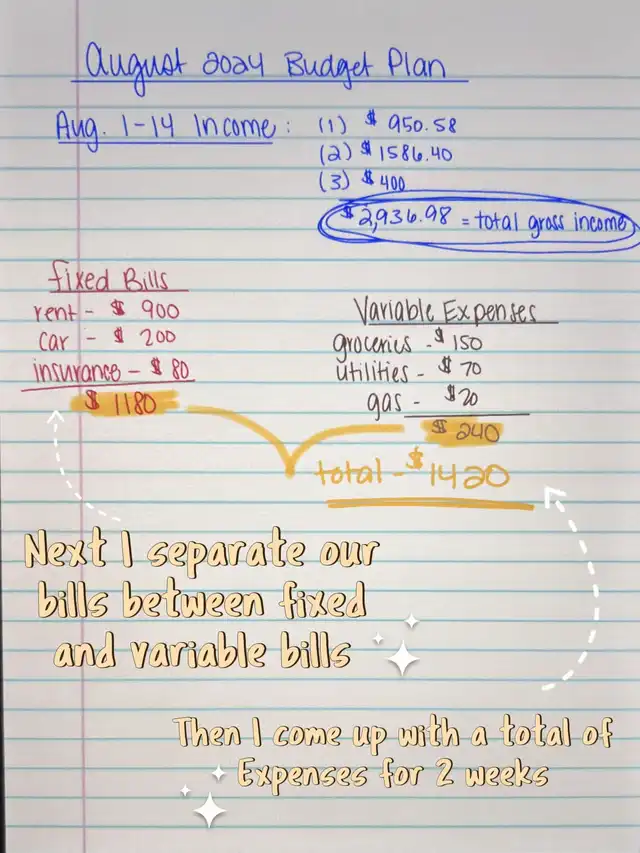 August 2024 Budget Plan
Aug. 1-14 Income: (1) $ 950.58
(2) $ 1586.40
(3) $ 400
$2,936.98 = total gross income
fixed Bills
rent - $ 900
car - $ 200
insurance - $ 80
$ 1180
Variable Expenses
groceries - $ 150
utilities - $ 70
gas - $20
$ 240
total - $1420
Next I separate our
bills between fixed
and variable bills
Then I come up with a total of
Expenses for 2 weeks